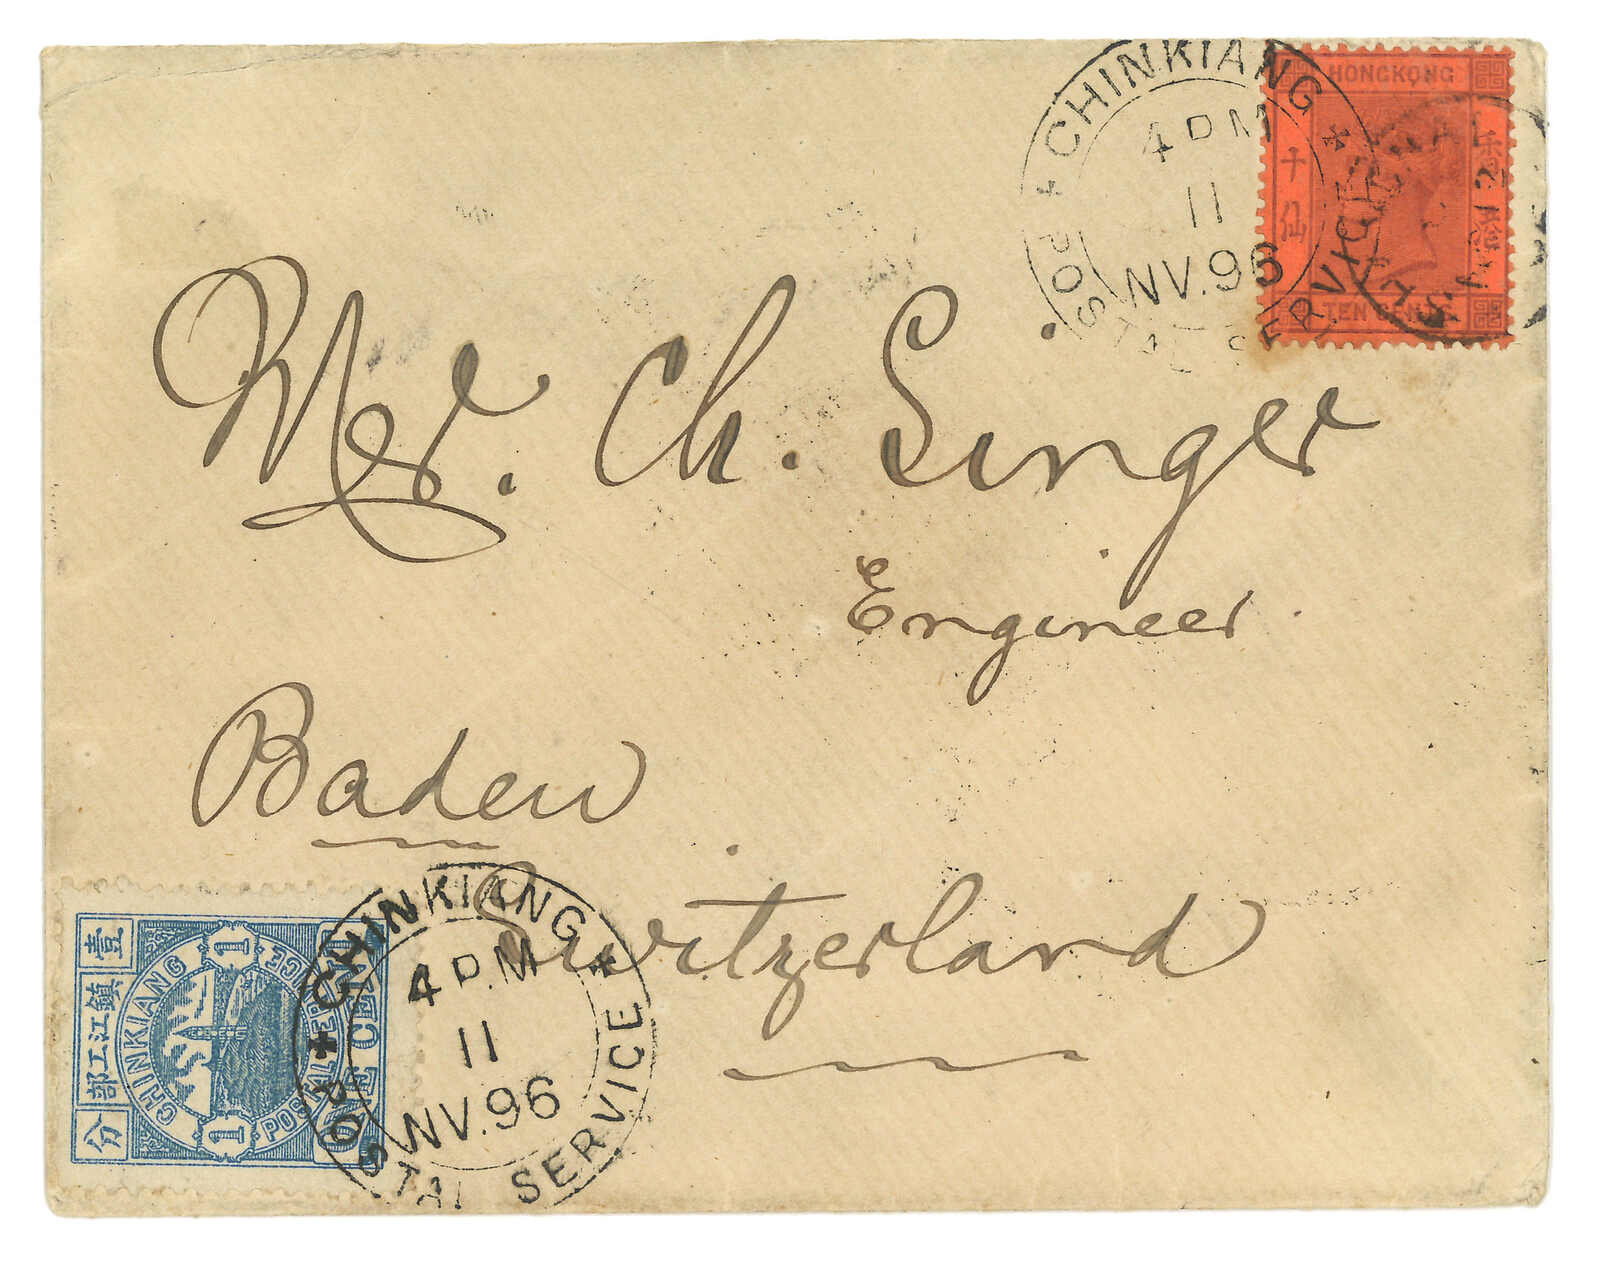 CHINKIANG
4 P.M
11
NV.96
POSTAL SERVICE
HONGKONG
十仙
TEN CENTS
Mr. Ch. Singer
Engineer.
Baden
Switzerland
CHINKIANG
4 P.M
11
NV.96
POSTAL SERVICE
壹
鎮江工部
分
CHINKIANG
POSTAL SERVICE
1
1
ONE CENT